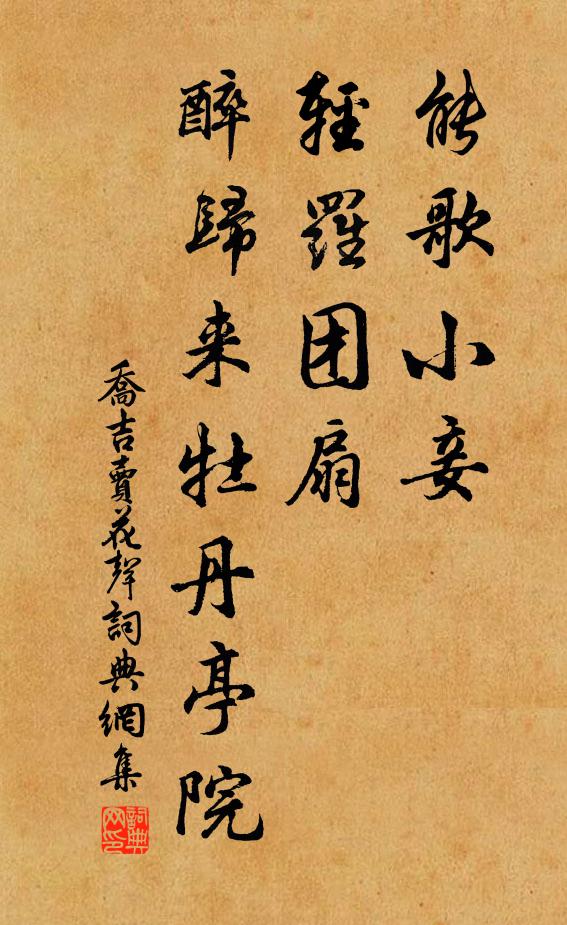 能歌小妾
輕羅团扇
醉歸来牡丹亭院
喬吉賣花聲詞典網集
詞典网印